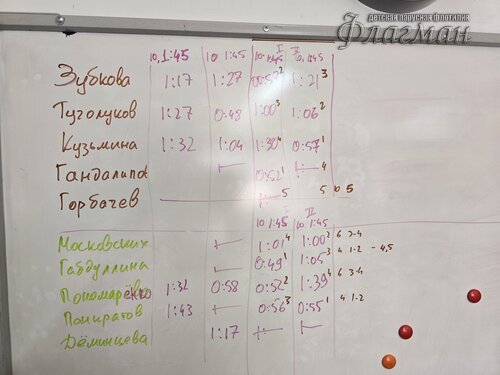 детская парусная флотилия
Флагман
I II
10, 1:45 10 1:45 10, 1:45 10, 1:45
Зубкова 1:17 1:27 0:57 2 1:21 3
Туголуков 1:27 0:48 1:00 3 1:06 2
Кузьмина 1:32 1:04 1:30 4 0:57 1
Гандалипов 0:52 1 4
Горбачев 5 5 10 5
I II
10 1:45 10 1:45
Московских 1:01 4 1:00 2 6 3-4
Габдуллина 0:49 1 1:05 3 4 1-2 - 4,5
Пономарёнко 1:32 0:58 0:52 2 1:39 4 6 3-4
Помиратов 1:43 0:56 3 0:55 1 4 1-2
Дёминцева 1:17